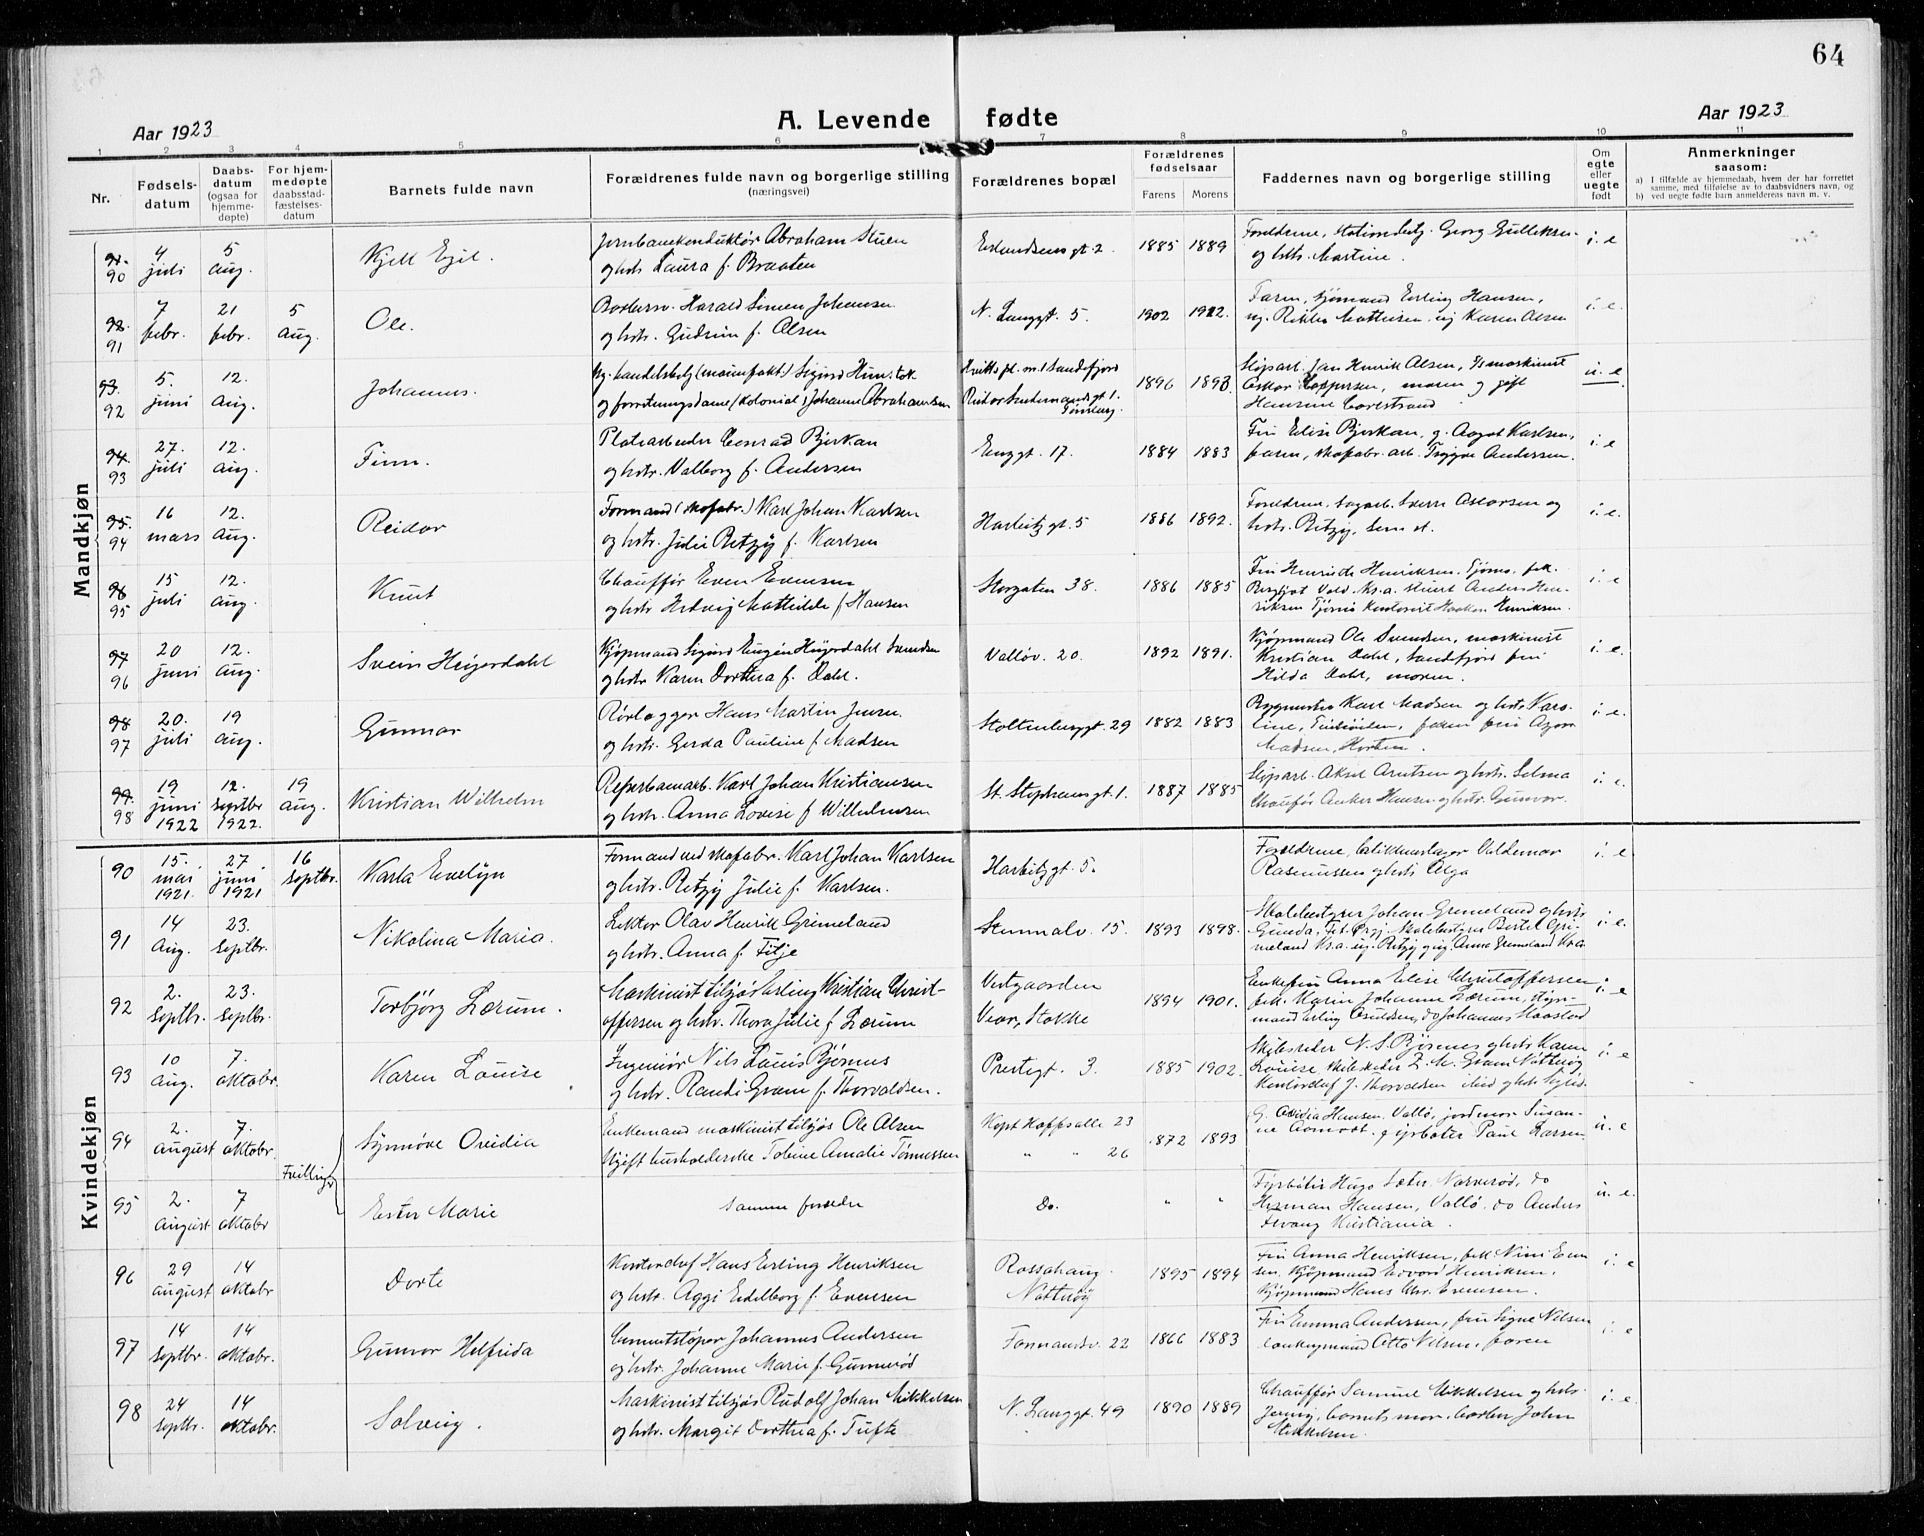 64
Aar 1923
A. Levende fødte
Aar 1923
1 2 3 4 5 6 7 8 9 10 11
Nr.
Fødsels-
datum
Daabs-
datum
(ogsaa for
hjemme-
døpte)
For hjem-
medøpte
daabsstad-
fæstelses-
datum
Barnets fulde navn
Forældrenes fulde navn og borgerlige stilling
(næringsvei)
Forældrenes bopæl
Forældrenes
fødselsaar
Farens Morens
Faddernes navn og borgerlige stilling
Om
egte
eller
uegte
født
Anmerkninger
saasom:
a) I tilfælde av hjemmedaab, hvem der har forrettet
samme, med tilføielse av to daabsvidners navn, og
b) ved uegte fødte barn anmelderens navn m. v.
Mandkjøn
91. 90
4 juli
5 aug.
Kjell Egil.
Jernbanekonduktør Abraham Stuen
og hstr. Laura f. Braaten
Erlandsens gt. 2
1885 1889
Forældrene, Stationsbetj. Georg Gulliksen
og hstr. Martine.
i. e
92. 91
7 febr.
21 febr.
5 aug.
Ole.
Harald Simen Johansen
og hstr. Gudrun f. Olsen
N. Langgt. 5.
1902 1922.
Faren, sjømand Erling Hansen,
ug. Rikka Mathisen, ug Karen Olsen
i. e.
93. 92
5. juni
12. aug.
Johannes.
og forretningsdame (kolonial) Johanne Abrahamsen
1896 1893
Skipsarb. Jan Henrik Olsen, maskinist
Oskar Jeppesen, moren og gift
Hansine Carlstrand
u. e
94. 93
27. juli
12. aug.
Finn.
Platearbeider Conrad Bjerkan
og hstr. Valborg f. Andersen
Enggt. 17.
1884 1883
Fru Elise Bjerkan, g. Aagot Karlsen,
faren, skofabr. arb. Trygve Andersen.
i. e
95. 94
16 mars
12. aug.
Reidar
Formand (skofabr.) Karl Johan Karlsen
og hstr. Julie Retzy f. Karlsen
Harbitz gt. 5
1886 1892.
Forældrene, Sagarb. Sverre Oskarsen og
hstr. Retzy, Sem st.
i. e.
96 95
15 juli
12. aug.
Knut
Chauffør Even Evensen
og hstr Hedvig Mathilde f Hansen
Storgaten 38.
1886 1885
Fru Henriette Henriksen, Tjømø, frk.
Bergljot Vold, Kr.a. Knut Anders Hen-
riksen Tjømø Kontorist Haakon Henriksen.
i. e
97 96
20 juni
12. aug.
Svein Heyerdahl
Kjøpmand Sigurd Eugen Heyerdahl Svendsen
og hstr Karen Dorthea f. Dahl.
Valløv. 20.
1892 1891.
Kjøpmand Ole Svendsen, maskinist
Kristian Dahl, Sandefjord fru
Hilda Dahl, moren.
i. e.
98 97
20. juli
19 aug.
Gunnar
Rørlægger Hans Martin Jensen.
og hstr. Gerda Pauline f. Madsen
Stoltenberggt. 29
1882 1883
Karl Madsen og hstr. Karo-
line, faren fru
Madsen, Horten.
i. e.
99. 98
19 juni 1922
12. septbr 1922.
19 aug.
Kristian Wilhelm
Reperbanearb. Karl Johan Kristiansen
og hstr. Anna Lovise f Wilhelmsen
St. Stephansgt. 1.
1887 1885
Skipsarb. Aksel Arntsen og hstr. Selma
Chauffør Anker Hansen og hstr. Gunvor.
i. e.
Kvindekjøn
90
15. mai 1921.
27 juni 1921
16 septbr.
Karla Evelyn
Formand ved skofabr. Karl Johan Karlsen
og hstr. Retzy Julie f. Karlsen.
Harbitzgt. 5.
Forældrene, Valdemar
Rasmussen og hstr Olga
i. e.
91
14 aug.
23. septbr.
Nikolina Maria.
Lektor Olav Henrik Grimeland
og hstr. Anna f. Fitje
Stenmalv. 15.
1893 1898.
Skolebestyrer Johan Grimeland og hstr
Gunda, Skolebestyrer Bertel Gri-
meland Kr.a. ug. Retzy og ug. Anna Grimeland Kr.a
i. e
92
2. septbr.
23. septbr.
Torbjørg Lærum.
Maskinist tilsjøs Erling Kristian Christ-
offersen og hstr. Thora Julie f. Lærum
Vestgaarden
Vear, Stokke
1894 1901.
Enkefru Anna Elise Christoffersen
frk. Karin Johanne Lærum, styr-
mand Erling Osuldsen, do Johannes Haastad
i. e
93
10 aug.
7. oktobr.
Karen Louise
Ingeniør Nils Louis Bjørnes
og hstr. Randi Gram f. Thorvaldsen.
Prestegt. 3.
1885 1902.
Skibsreder N. S. Bjørnes og hstr. Karen
Louise, skibsreder Z. M. Gram Nøtterøy
Kontorchef J. Thorvaldsen
i. e
94
2. august
7. oktobr.
Tvillinger
Synnøve Ovidia
Enkemand maskinist tilsjøs Ole Olsen
Ugift husholderske Tobine Amalie Tønnessen
Kapt Hoffsalle 23
" " 26
1872 1893
G. Ovidia Hansen, Vallø, jordmor Susan-
ne Aamodt, fyrbøter Paul Larsen
u. e
95
2. august
7 oktobr
Ester Marie
Samme foreldre
Do.
" "
Fyrbøter Hugo Sæter, Narverød, do
Herman Hansen, Vallø. do Anders
Fevang Kristiania.
u. e.
96
29 august
14 oktobr
Dorte
Kontorchef Hans Erling Henriksen
og hstr. Aggi Edelborg f. Evensen
Rossahaug.
Nøtterøy
1895 1894
Fru Anna Henriksen, frk Nini Even
sen. Kjøpmand Edvard Henriksen.
Kjøpmand Hans Chr. Evensen.
i. e
97
14 septbr.
14 oktobr.
Gunvor Helfrida
Cementstøper Johannes Andersen
og hstr. Johanne Marie f. Gunnerød
Formandsv. 22
1866 1883
Fru Emma Andersen, fru Signe Nilsen
Otto Nilsen, faren
i. e
98
24 septbr.
14 oktobr.
Solveig.
Maskinist tilsjøs Rudolf Johan Mikkelsen
og hstr. Margit Dorthea f. Tufte
N. Langgt. 49
1890 1889
Chauffør Samuel Mikkelsen og hstr.
Jenny, barnets mor. John
Mikkelsen.
i. e.